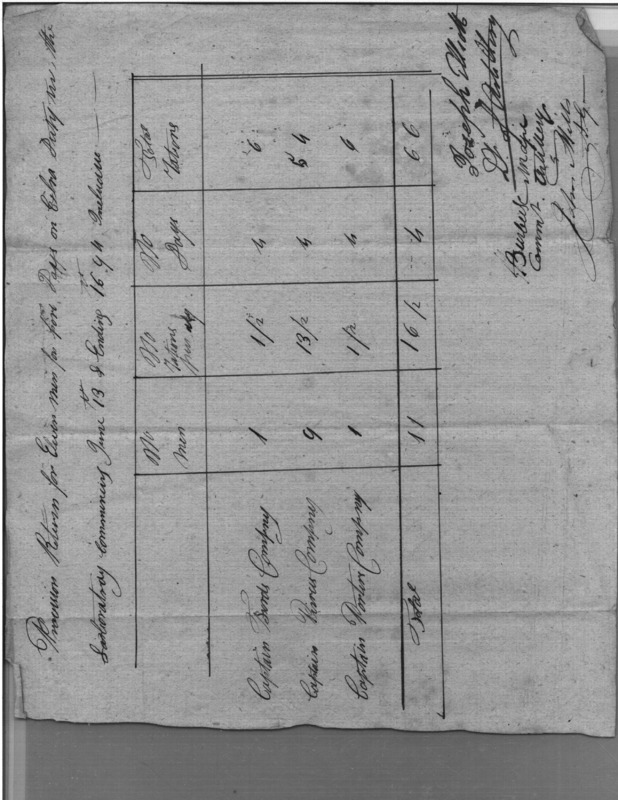 Provision Return for Eleven men for four Days on Extra Duty in the
Laboratory Commencing June 13th & Ending 16th 94 Inclusive
No men | No Rations per day | No Days | Total Rations
Captain Company 1 1 1/2 4 6
Captain Company 9 13 1/2 4 54
Captain Porter Company 1 1 1/2 4 6
Total 11 16 1/2 4 66
Joseph Elliott
Lt of Artillery
Burbeck Major
Commt. Artillery
John Mills